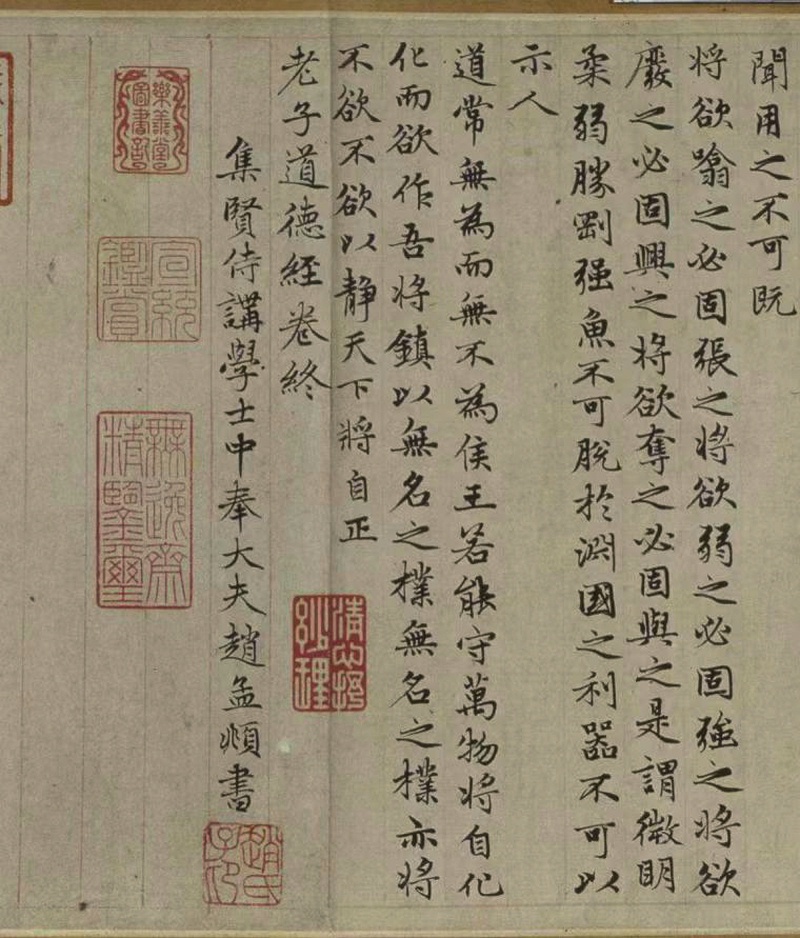 聞用之不可既
將欲噏之必固張之將欲弱之必固強之將欲
廢之必固興之將欲奪之必固與之是謂微明
柔弱勝剛强魚不可脫於淵國之利器不可以
示人
道常無為而無不為侯王若能守萬物將自化
化而欲作吾將鎮以無名之樸無名之樸亦將
不欲不欲以静天下將自正
老子道德經卷終
集賢侍講學士中奉大夫趙孟頫書
趙氏子昂
樂善堂圖書記
宣統鑑賞
無逸齋精鑒璽